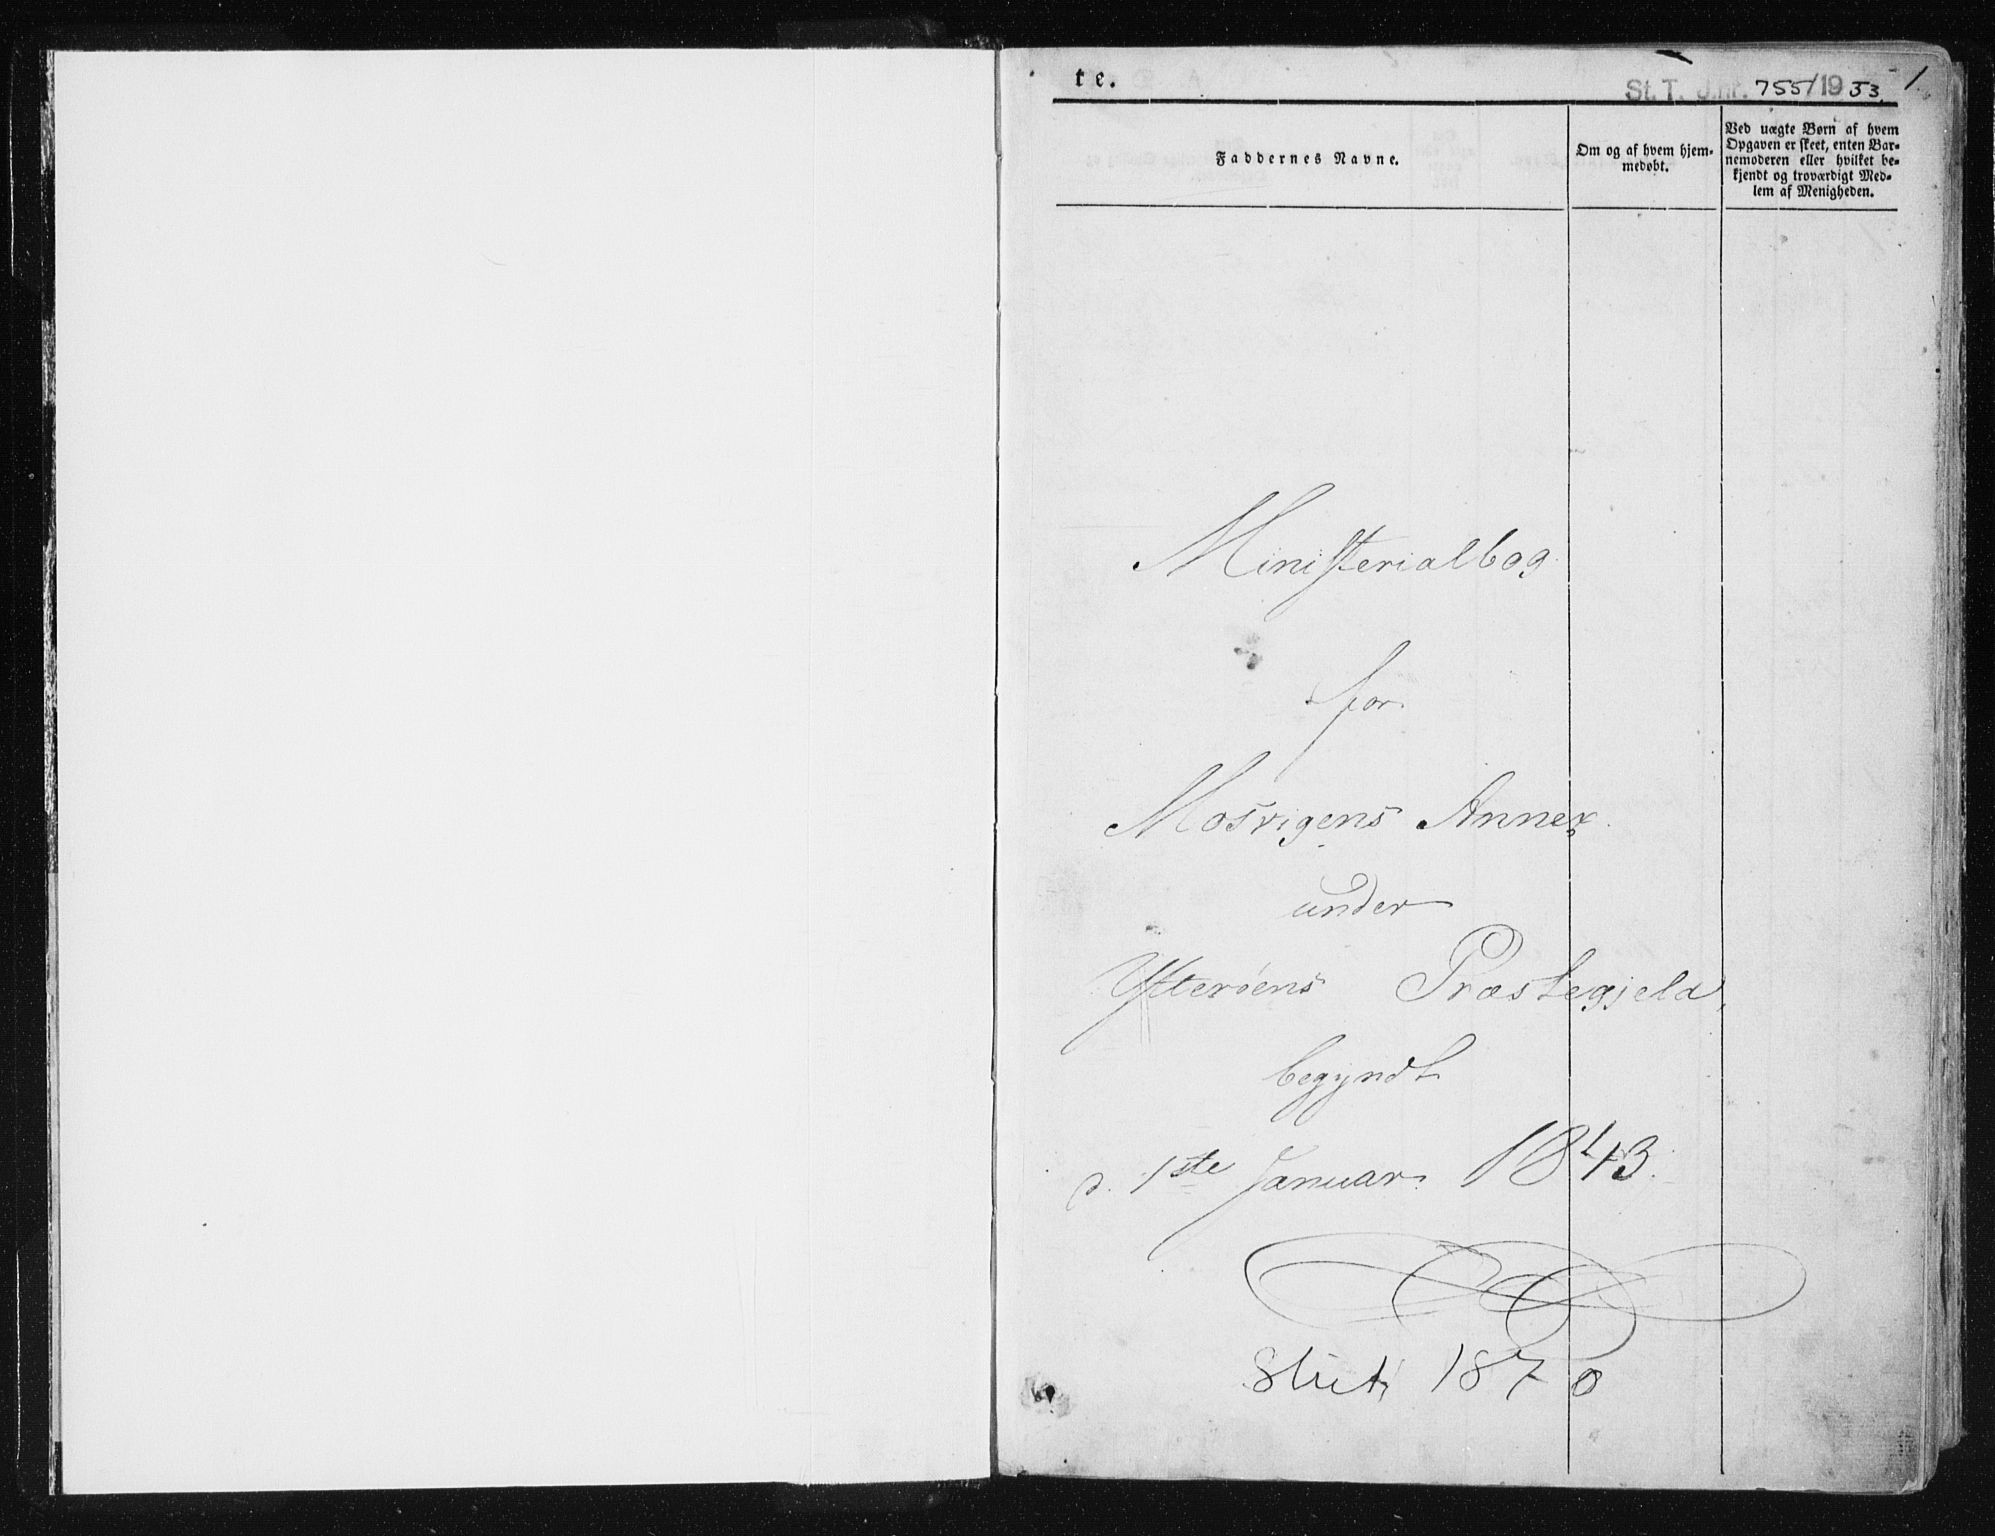 te.
St. T. J.nr. 755/1953. 1
Faddernes Navne.
Om og af hvem hjem-
medøbt.
Ved uægte Børn af hvem
Opgaven er skeet, enten Bar-
nemoderen eller hvilket be-
kjendt og troværdigt Med-
lem af Menigheden.
Ministerialbog
for
Mosvigens Annex
under
Ytterøens Præstegjeld,
begyndt
d. 1ste Januar 1843.
Slut 1870